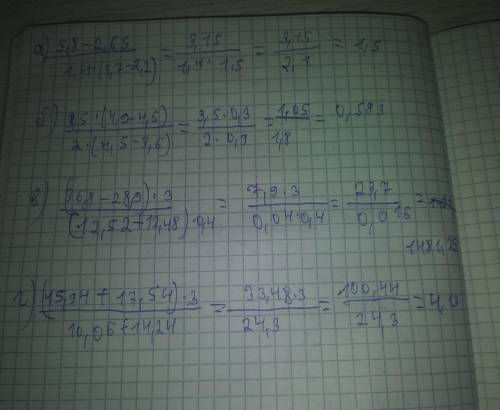 а) 5,8-2,65 / 1,4·(3,7-2,2) = 3,15 / 1,4·1,5 = 3,15 / 2,1 = 1,5
б) 3,5·(4,9-4,6) / 2·(4,5-3,6) = 3,5·0,3 / 2·0,9 = 1,05 / 1,8 = 0,583
в) (36,8-28,9)·3 / (12,52-12,48)·0,4 = 7,9·3 / 0,04·0,4 = 23,7 / 0,016 =
1481,25
г) (15,94+17,54)·3 / 10,06+14,24 = 33,48·3 / 24,3 = 100,44 / 24,3 = 4,13